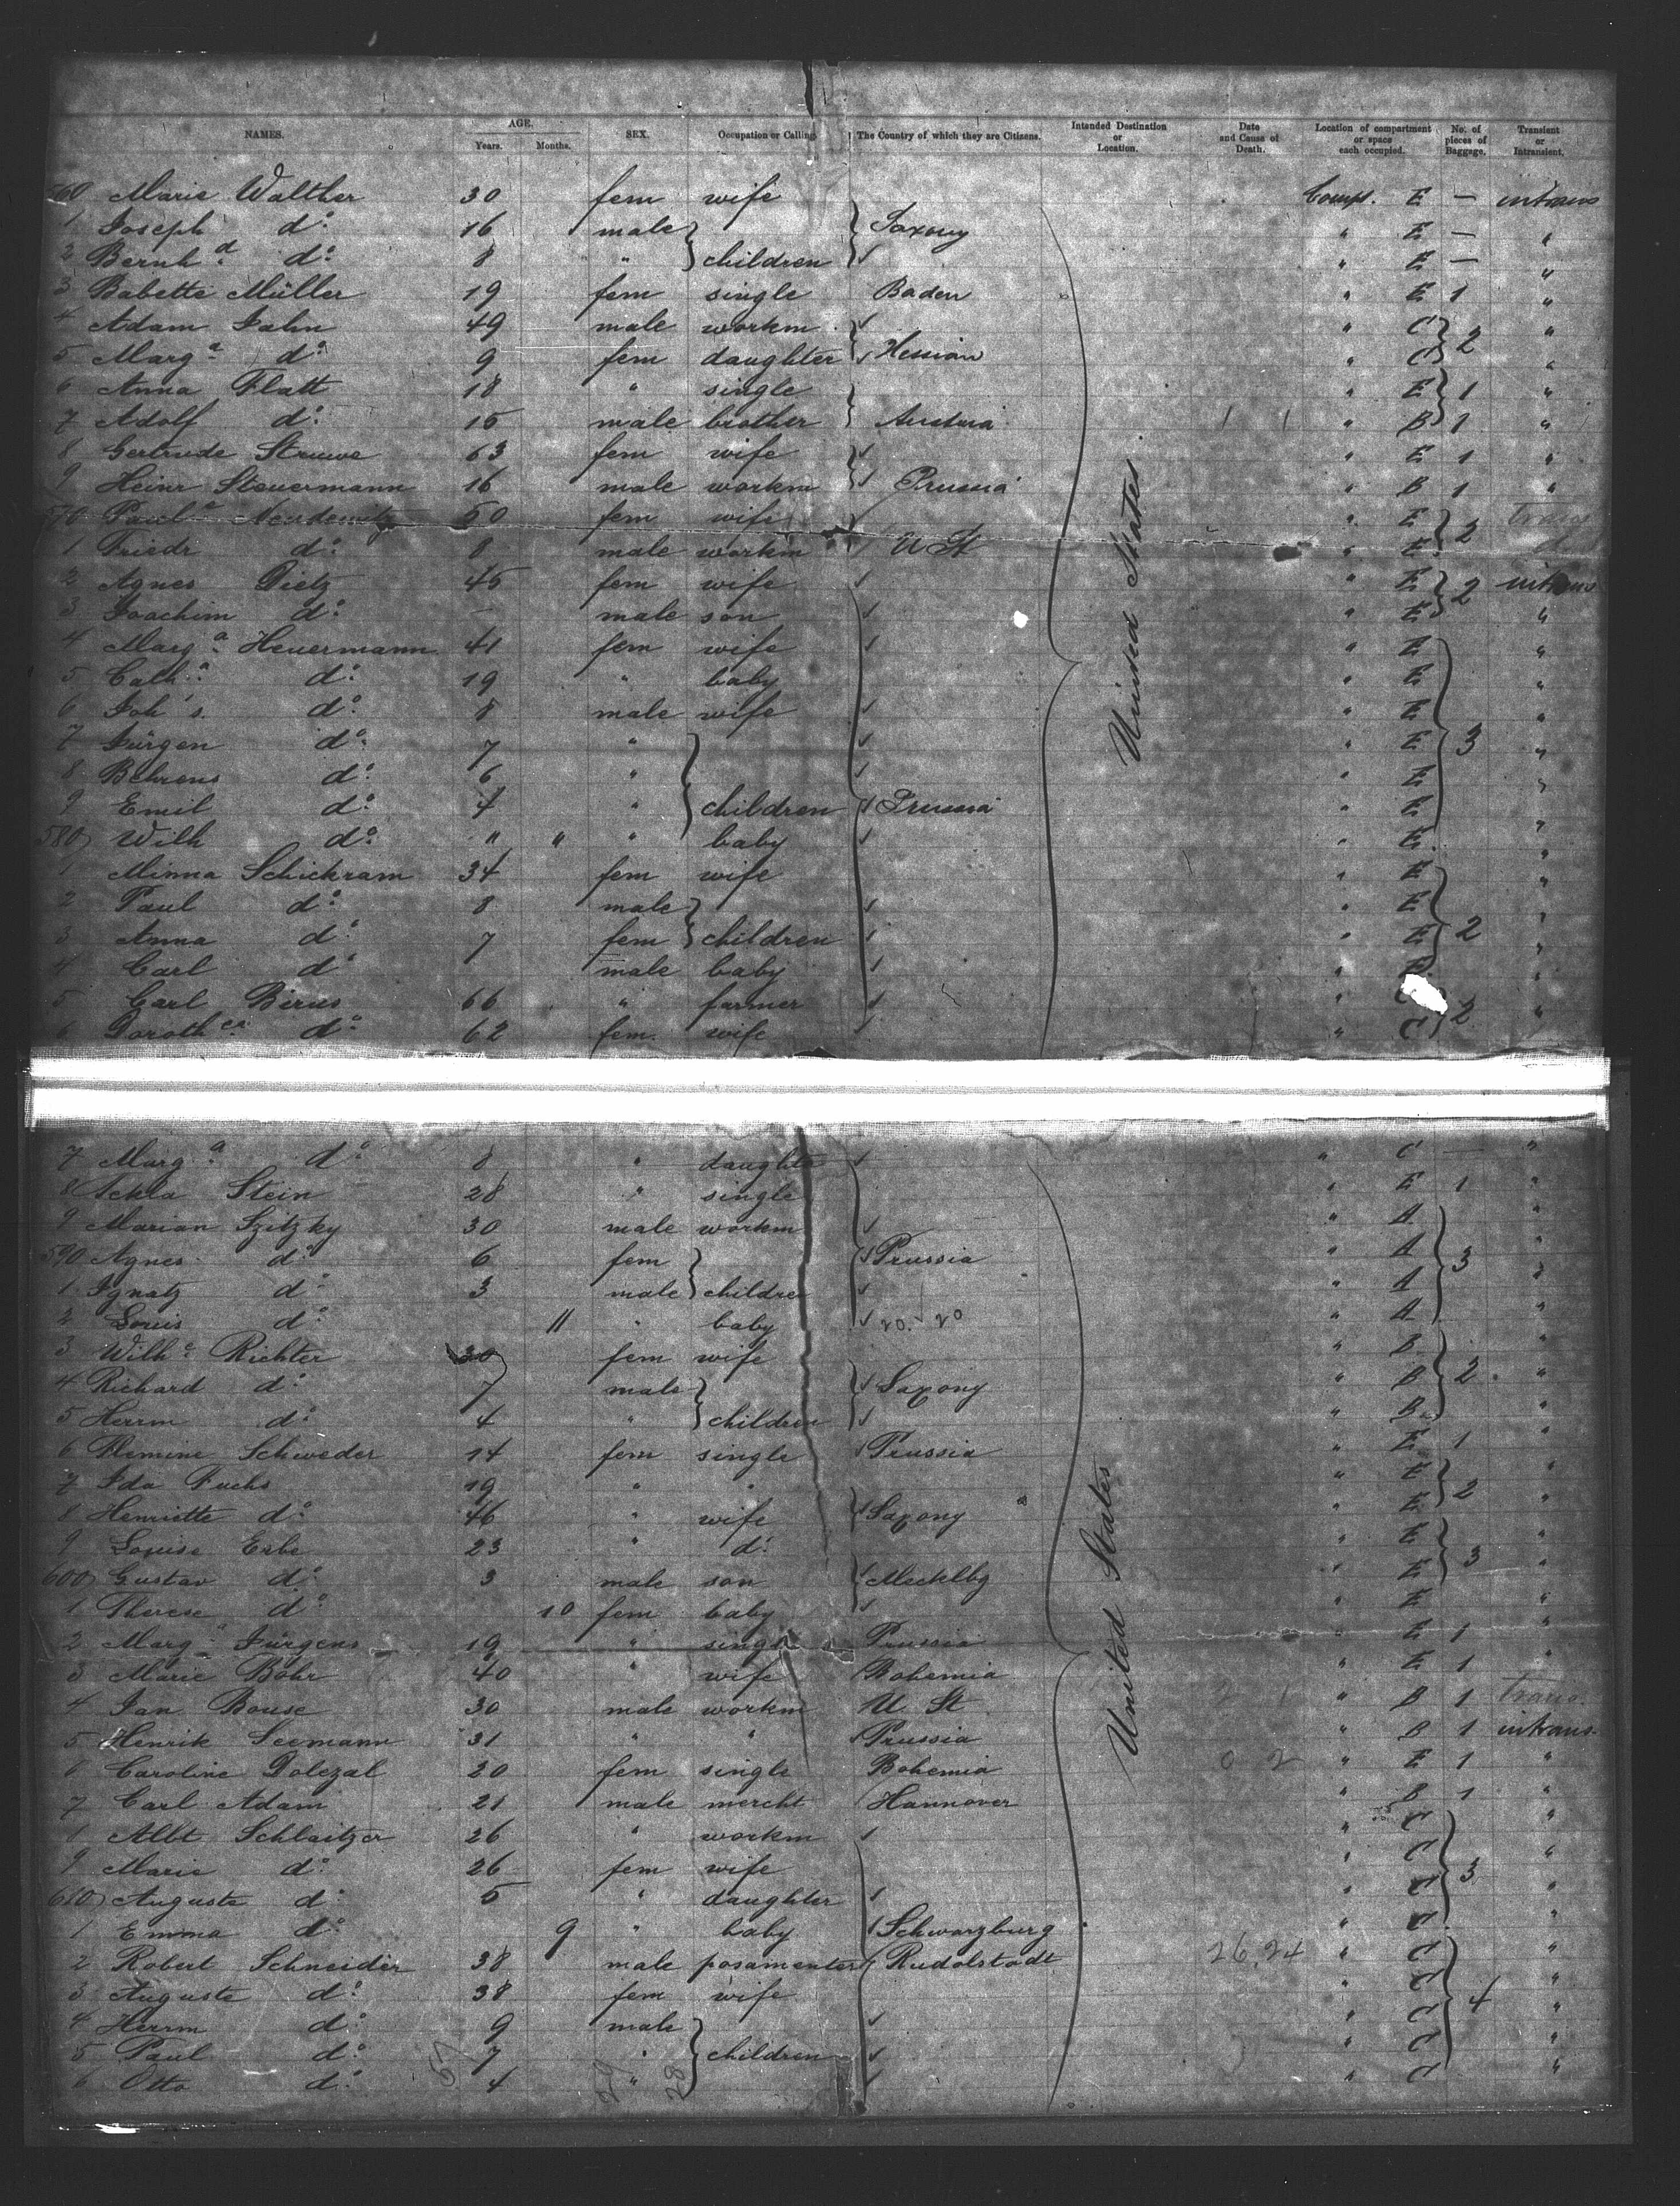 NAMES. AGE. Years. Months. SEX. Occupation or Calling. The Country of which they are Citizens. Intended Destination or Location. Date and Cause of Death. Location of compartment or space each occupied. No. of pieces of Baggage. Transient or Intransient.
560 Marie Walther 30 fem wife Compt. E — intrans
1 Joseph do 16 male Saxony " E — "
2 Bernhd do 8 " children " E — "
3 Babette Müller 19 fem single Baden " E 1 "
4 Adam Jahn 49 male workm " C "
5 Marga do 9 fem daughter Hessian " C 2 "
6 Anna Flatt 18 " single " E 1 "
7 Adolf do 15 male brother Austria " B 1 "
8 Gertrude Struwe 63 fem wife " E 1 "
9 Heinr Steuermann 16 male workm Prussia " B 1 "
570 Paula 50 fem wife " E 2 trans
1 Friedr do 8 male workm U St " E d
2 Agnes Dietz 45 fem wife " E 2 intrans
3 Joachim do — male son " E "
4 Marga Heuermann 41 fem wife " E "
5 Catha do 19 " baby " E "
6 Joh's do 8 male wife " E "
7 Jürgen do 7 " " E 3 "
8 Behrens do 6 " " E "
9 Emil do 4 " children Prussia " E "
580) Wilh do " " " baby " E "
United States
1 Minna Schickram 34 fem wife " E "
2 Paul do 8 male " E "
3 Anna do 7 fem children " E 2 "
4 Carl do male baby " E "
5 Carl Birus 66 " farmer " C 2 "
6 Dorothea do 62 fem wife " C "
7 Marga do 8 " daughter " C — "
8 Tekla Stein 28 " single " E 1 "
9 Marian Szitzky 30 male workm " A "
590 Agnes do 6 fem Prussia " A 3 "
1 Ignatz do 3 male children " A "
2 Louis do 11 " baby 20. 20 " A "
3 Wilha Richter 30 fem wife " B "
4 Richard do 7 male Saxony " B 2 "
5 Herrm do 4 " children " B "
6 Flemine Schweder 14 fem single Prussia " E 1 "
7 Ida Fuchs 19 " " " E 2 "
8 Henriette do 46 " wife Saxony " E "
9 Louise Erbe 23 " do " E 3 "
600) Gustav do 3 male son Mecklbg " E "
1 Therese do 10 fem baby " E "
2 Marga Jürgens 19 " single Prussia " E 1 "
3 Marie Böhr 40 " wife Bohemia " E 1 "
4 Jan Bouse 30 male workm U. St 2 1 " B 1 trans.
United States
5 Henrik Seemann 31 " " Prussia " B 1 intrans.
6 Caroline Dolezal 20 fem single Bohemia 0 2 " E 1 "
7 Carl Adam 21 male mercht Hannover " B 1 "
8 Albt Schlaitzer 26 " workm " C "
9 Marie do 26 fem wife " C 3 "
610) Auguste do 5 " daughter " C "
1 Emma do 9 " baby Schwarzburg " C "
2 Robert Schneider 38 male posamenter Rudolstadt 26.24 " C "
3 Auguste do 38 fem wife " C 4 "
4 Herrm do 9 male " C "
5 Paul do 7 " children " C "
6 Otto do 4 " " C "